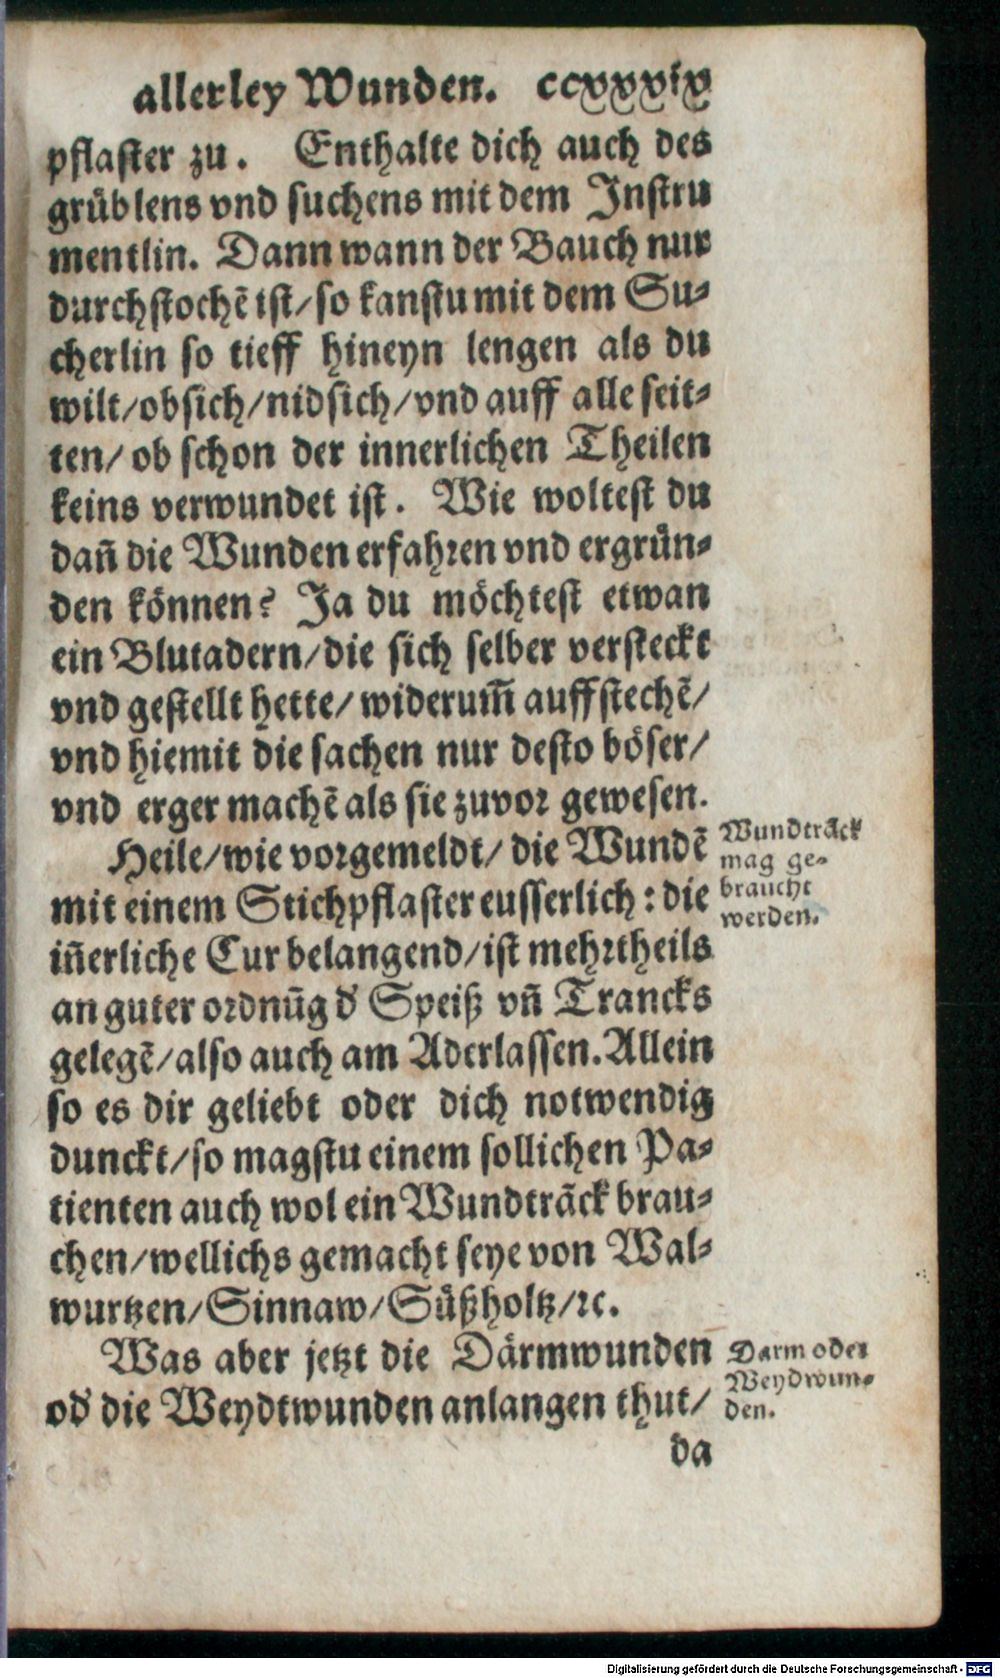 allerley Wunden. ccxxxix
pflaster zu. Enthalte dich auch des
grüblens vnd suchens mit dem Instru
mentlin. Dann wann der Bauch nur
durchstochē ist/so kanstu mit dem Su-
cherlin so tieff hineyn lengen als du
wilt/obsich/nidsich/vnd auff alle seit-
ten/ ob schon der innerlichen Theilen
keins verwundet ist. Wie woltest du
dañ die Wunden erfahren vnd ergrün-
den können? Ja du möchtest etwan
ein Blutadern/die sich selber versteckt
vnd gestellt hette/ widerum̃ auffstechē/
vnd hiemit die sachen nur desto böser/
vnd erger machē als sie zuvor gewesen.
Heile/wie vorgemeldt/ die Wundē
mit einem Stichpflaster eusserlich: die
iñerliche Cur belangend/ist mehrtheils
an guter ordnūg d' Speiß vñ Trancks
gelegē/also auch am Aderlassen. Allein
so es dir geliebt oder dich notwendig
dunckt/so magstu einem sollichen Pa-
tienten auch wol ein Wundträck brau-
chen/wellichs gemacht seye von Wal-
wurtzen/Sinnaw/Süßholtz/ꝛc.
Was aber jetzt die Därmwunden
od' die Weydtwunden anlangen thut/
da
Wundträck
mag ge-
braucht
werden.
Darm oder
Weydwun-
den.
Digitalisierung gefördert durch die Deutsche Forschungsgemeinschaft - DFG